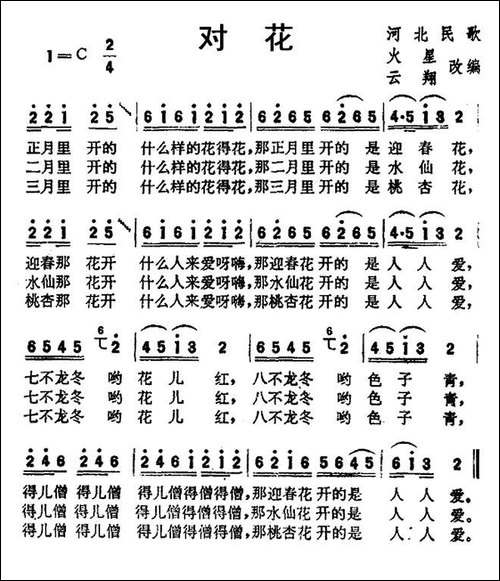 对 花
1=C 2/4
河北民歌
火星
云翔 改编
2 2 1 2 5 | 6 1 6 1 2 1 2 | 6 2 6 5 6 2 6 5 | 4·5 1 3 2
正月里 开的 什么样的花得花,那正月里开的 是 迎 春 花,
二月里 开的 什么样的花得花,那二月里开的 是 水 仙 花,
三月里 开的 什么样的花得花,那三月里开的 是 桃 杏 花,
2 2 1 2 5 | 6 1 6 1 2 1 2 | 6 2 6 5 6 2 6 5 | 4·5 1 3 2
迎春那 花开 什么人来爱呀嗨,那迎春花开的 是 人 人 爱,
水仙那 花开 什么人来爱呀嗨,那水仙花开的 是 人 人 爱,
桃杏那 花开 什么人来爱呀嗨,那桃杏花开的 是 人 人 爱,
6 5 4 5 6 2 | 4 5 1 3 2 | 6 5 4 5 6 2 | 4 5 1 3 2
七不龙冬 哟 花 儿 红, 八不龙冬 哟 色 子 青,
七不龙冬 哟 花 儿 红, 八不龙冬 哟 色 子 青,
七不龙冬 哟 花 儿 红, 八不龙冬 哟 色 子 青,
2 4 6 2 4 6 | 2 4 6 1 2 1 2 | 6 2 6 5 5 6 4 5 | 6 1 3 2
得儿僧 得儿僧 得儿僧得僧得僧,那迎春花 开的是 人 人 爱。
得儿僧 得儿僧 得儿僧得僧得僧,那水仙花 开的是 人 人 爱。
得儿僧 得儿僧 得儿僧得僧得僧,那桃杏花 开的是 人 人 爱。